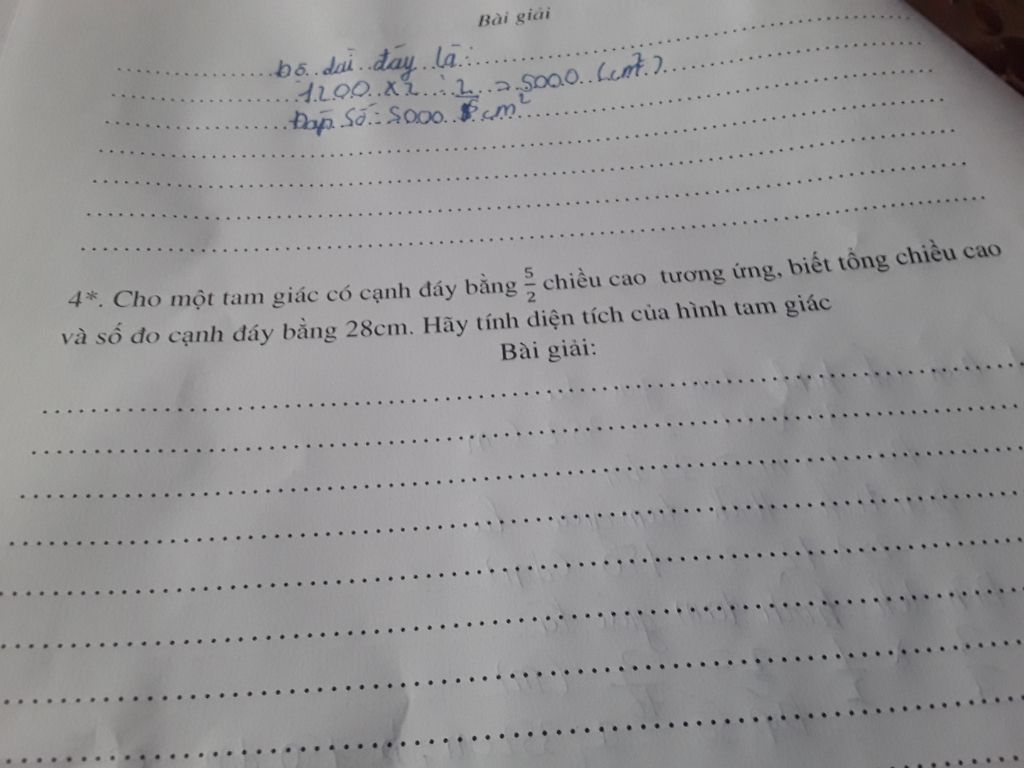 Bài giải
Độ dài đáy là:
1200 x 2 : = 5000 (cm²)
Đáp số: 5000 cm²
4*. Cho một tam giác có cạnh đáy bằng 5/2 chiều cao tương ứng, biết tổng chiều cao
và số đo cạnh đáy bằng 28cm. Hãy tính diện tích của hình tam giác
Bài giải: